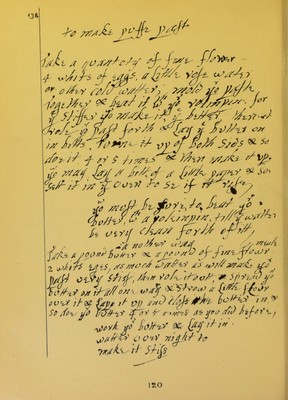 138
to make puffe past
Take a quantety of fine flower
4 whits of eggs, a little rose water
or other cold water, mold yᵉ past
together & beat it wᵗʰ yᵉ rolinpin, for
yᵉ stiffer you make it yᵉ better, then
role yᵉ past forth & lay yᵉ butter on
in bitts, turne it up of both sids & so
doe it 4 or 5 times & then make it up,
yo may lay a bitt of a little paper & so
sett it in yᵉ oven to se if it rise,
yo must be sure to beat yᵒʳ
butter, wᵗʰ a rolinpin, till yᵉ watter
be very clean forth of it,
a nother way
Take a pound butter & a pound of fine flower
2 whits eges, as much watter as will make yᵉ
past very stif, then role it out & spread yᵉ
butter on it all one way & strow a little flower
over it & lape it up and close the butter in &
so doe yᵒʳ butter 4 or 5 times as you did before,
work yᵒʳ butter & lay it in
watter over night to
make it stiff
120